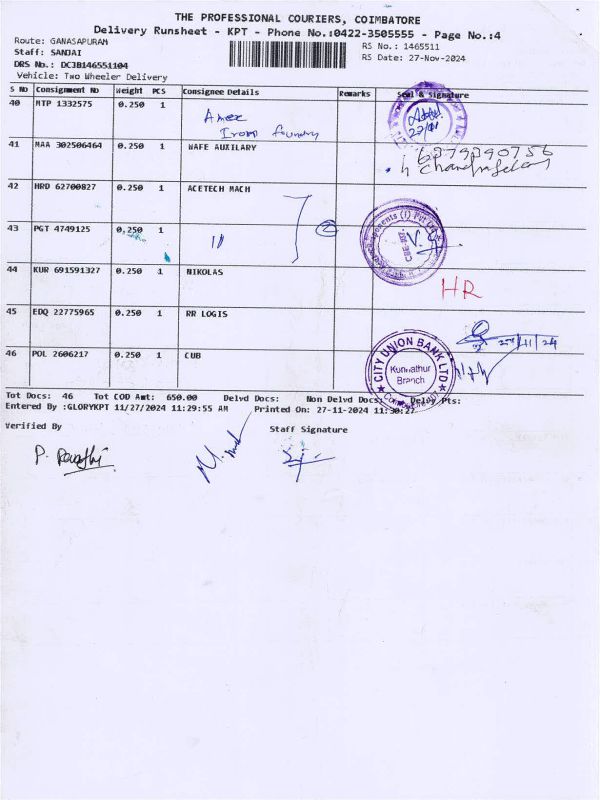 THE PROFESSIONAL COURIERS, COIMBATORE
Delivery Runsheet - KPT - Phone No.:0422-3505555 - Page No.:4
Route: GANASAPURAM
RS No.: 1465511
Staff: SANJAI
RS Date: 27-Nov-2024
DRS No.: DCJB146551104
Vehicle: Two Wheeler Delivery
S No Consignment No Weight PCS Consignee Details Remarks Seal & Signature
40 MTP 1332575 0.250 1 Amex
Iron foundry
41 MAA 302506464 0.250 1 WAFE AUXILARY
6379290756
42 HRD 62700827 0.250 1 ACETECH MACH
43 PGT 4749125 0.250 1 "
44 KUR 691591327 0.250 1 NIKOLAS HR
45 EDQ 22775965 0.250 1 RR LOGIS
46 POL 2606217 0.250 1 CUB
CITY UNION BANK LTD
Kunnathur
Branch
Tot Docs: 46 Tot COD Amt: 650.00 Delvd Docs: Non Delvd Docs: Delvy Pts:
Entered By :GLORYKPT 11/27/2024 11:29:55 AM Printed On: 27-11-2024 11:30:27
Verified By
Staff Signature